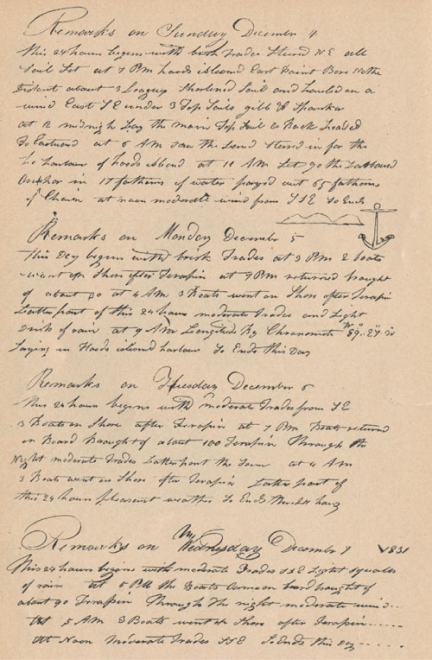 Remarks on Sunday December 4
this 24 hours begins with brisk trades Steerd N E all
Sail Set at 7 PM hoods island East Point Bore N the
Distent about 3 Leagues Shortened Sail and hauld on a
wind East S E under 3 Top Sails gibb & Spanker
at 12 midnight Lay the main Top Sail to Back headed
To Eastward at 6 AM saw the Land Steerd in for the
harbour of hoods island at 11 AM Let go the Larboard
Anchor in 17 fathoms of water payed out 65 fathoms
of Chain at noon moderate wind from S S E So Ends
Remarks on Monday December 5
this Day begins with brisk Trades at 3 PM 2 boats
went on Shore after Terapin at 7 PM returned braught
of about 50 at 4 AM 3 Boats went on Shore after Terapin
Latter part of this 24 hours moderate Trades and Light
of rain at 9 AM Longitude by Chronometer W 89..27..
Laying in Hoods island harbour So Ends this Day
Remarks on Tuesday December 6
this 24 hours begins with moderate Trades from S E
3 Boats on Shore after Terapin at 7 PM Boats returned
on Board Braught of about 100 Terapin Through the
Night moderate Trades Latter part the Same at 4 AM
3 Boats went on Shore after Terapin Latter part of
this 24 hours pleasent weather So Ends
Remarks on Wednesday December 7 1831
This 24 hours begins with moderate Trades S S E Light squales
of rain at 6 PM the Boats Came on board braught of
about 90 Terappin Through The night moderate wind...
At 5 AM 3 Boats went on Shore after Terapin.....
At Noon Moderate Trades S S E So Ends this Day.....